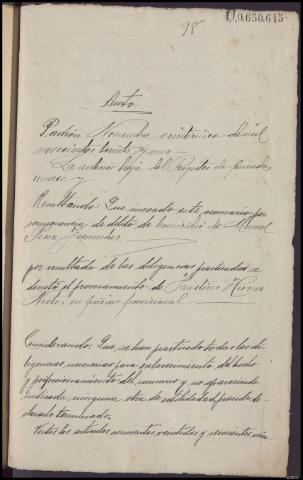 98
U0.650.645
Auto
Padrón Noviembre veintcinco de mil
novecientos treinta y uno=
La anterior hoja del Registro de penados
unase y
Resultando: Que incoado este sumario por
consecuencia de delito de homicidio de Manuel
Fernandez
por resultado de las diligencias practicadas se
decretó el procesamiento de Faustino
en prision provisional
Considerando: Que se han practicado todas las di-
ligencias necesarias para esclarecimiento del hecho
y perfeccionamiento del sumario y no apareciendo
indicada ninguna otra de utilidad procede de-
clararlo terminado.
Vistos los articulos seiscientos veintidos y seiscientos vein-